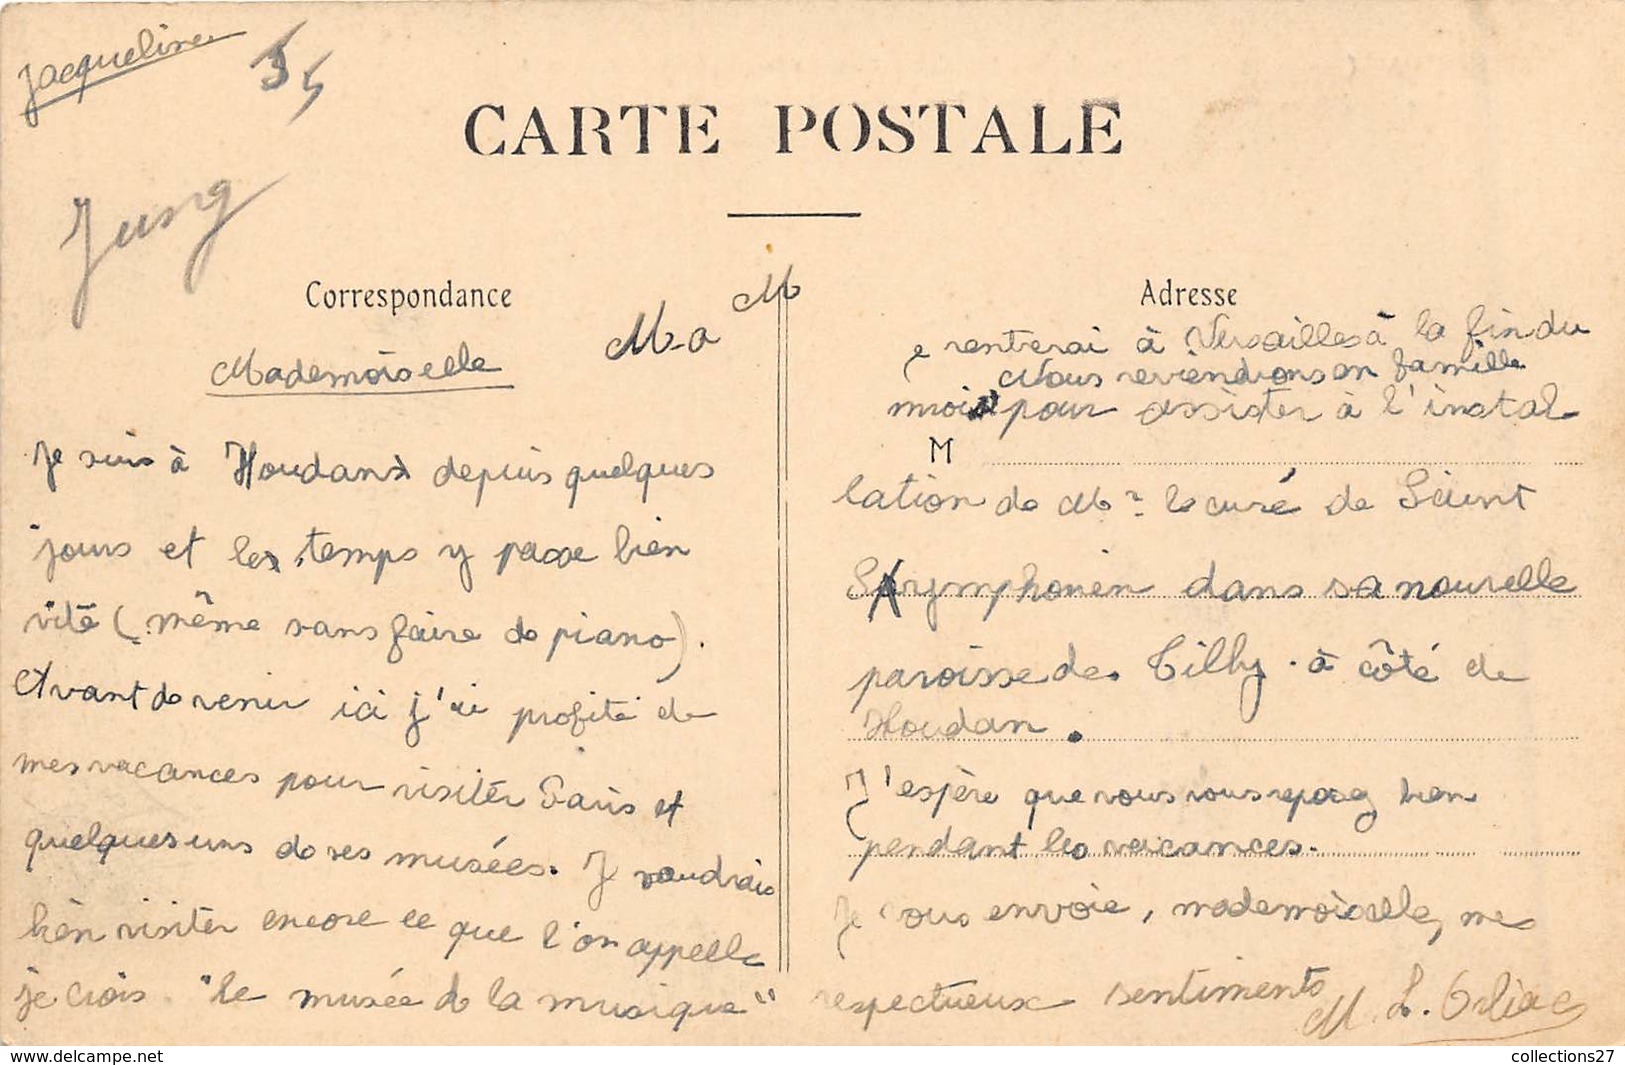 Jacqueline
35
CARTE POSTALE
Jung
Correspondance
Mademoiselle
M-a M
Je suis à Houdan depuis quelques
jours et les temps y passe bien
vité (même sans faire de piano).
Avant de venir ici j'ai profité de
mes vacances pour visiter Paris et
quelques uns de ses musées. J voudrais
bien visiter encore ce que l'on appelle
je crois "le musée de la musique"
Adresse
e rentrerai à Versailles à la fin du
Nous reviendrons en famille
mois pour assister à l'instal
M
lation de Mr le curé de Saint
Symphorien dans sa nouvelle
paroisse de Tilly à côté de
Houdan.
J'espère que vous vous reposez bien
pendant les vacances.
Je vous envoie, mademoiselle, mes
respectueux sentiments
M. L. Orliac
collections27